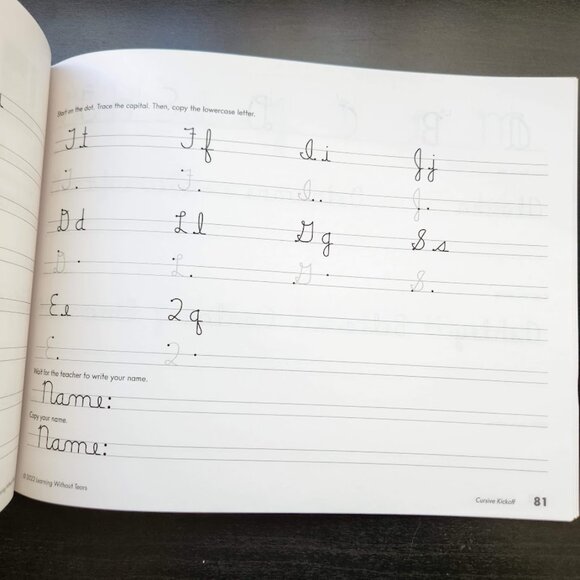 Start on the dot. Trace the capital. Then, copy the lowercase letter.
T t F f I i J j
T F I J
D d L l G g S s
D L G S
E e Q q
E Q
Wait for the teacher to write your name.
Name:
Copy your name.
Name:
© 2022 Learning Without Tears
Cursive Kickoff 81